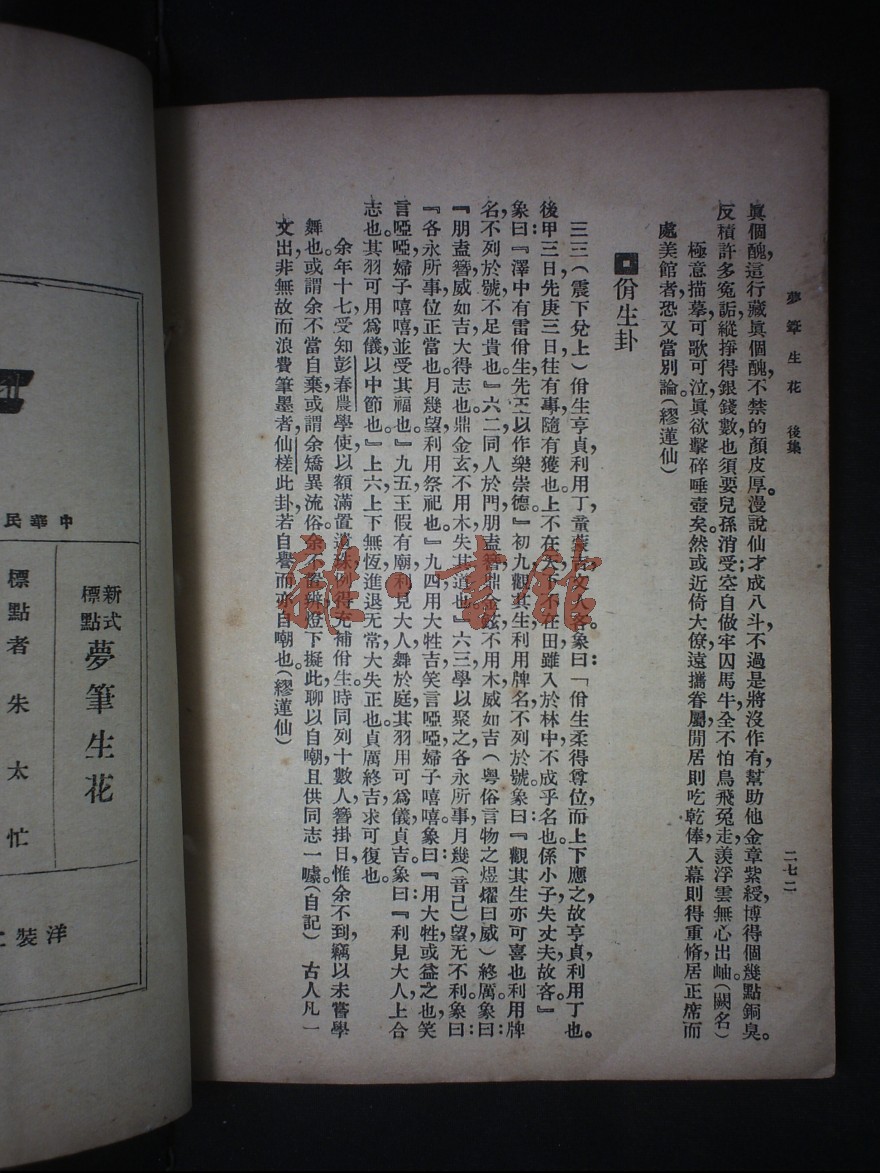 夢筆生花　後集
二七二
眞個醜，這行藏眞個醜，不禁的顏皮厚。漫說仙才成八斗，不過是將沒作有，幫助他金章紫綬，博得個幾點銅臭。
反積許多冤詬，縱掙得銀錢數也須要兒孫消受，空自做牢囚馬牛，全不怕烏飛兔走，羨浮雲無心出岫。（闕名）
極意描摹，可歌可泣，眞欲擊碎唾壺矣。然或近倚大僚，遠攜眷屬，閒居則吃乾俸，入幕則得重脩，居正席而
處美館者，恐又當別論。（繆蓮仙）
佾生卦
三三（震下兌上）佾生亨貞，利用丁，童蒙吉，文人吝。彖曰：「佾生柔得尊位，而上下應之，故亨貞利用丁也。
後甲三日，先庚三日，往有事，隨有獲也。上不在天，下不在田，雖入於林中，不成乎名也。係小子，失丈夫，故吝。』
象曰：『澤中有雷，佾生，先王以作樂崇德。』初九，觀其生，利用牌，名不列於號。象曰：『觀其生，亦可喜也，利用牌，
名不列於號，不足貴也。』六二，同人於門，朋盍簪，鼎金鉉，不用木，威如吉（粤俗言物之煜燿曰威）終厲。象曰：
『朋盍簪，威如吉，大得志也。鼎金玄，不用木，失其道也。』六三，學以聚之，各永所事，月幾（音己）望，无不利。象曰：
『各永所事，位正當也。月幾望，利用祭祀也。』九四，用大牲吉，笑言啞啞，婦子嘻嘻。象曰：『用大牲，或益之也，笑
言啞啞，婦子嘻嘻，並受其福也。』九五，王假有廟，利見大人，舞於庭，其羽用可爲儀，貞吉。象曰：『利見大人，上合
志也。其羽可用爲儀，以中節也。』上六，上下無恆，進退无常，大失正也。貞厲終吉，求可復也。
余年十七，受知彭春農學使，以額滿置遺珠，例得充補佾生。時同列十數人，簪掛日，惟余不到，竊以未嘗學
舞也。或謂余不當自棄，或謂余矯異流俗，余不置辨，燈下擬此，聊以自嘲，且供同志一噱。（自記）　古人凡一
文出，非無故而浪費筆墨者，仙槎此卦，若自譽而亦自嘲也。（繆蓮仙）
中華民
新式標點
夢筆生花
標點者　朱太忙
洋裝
雜·書館